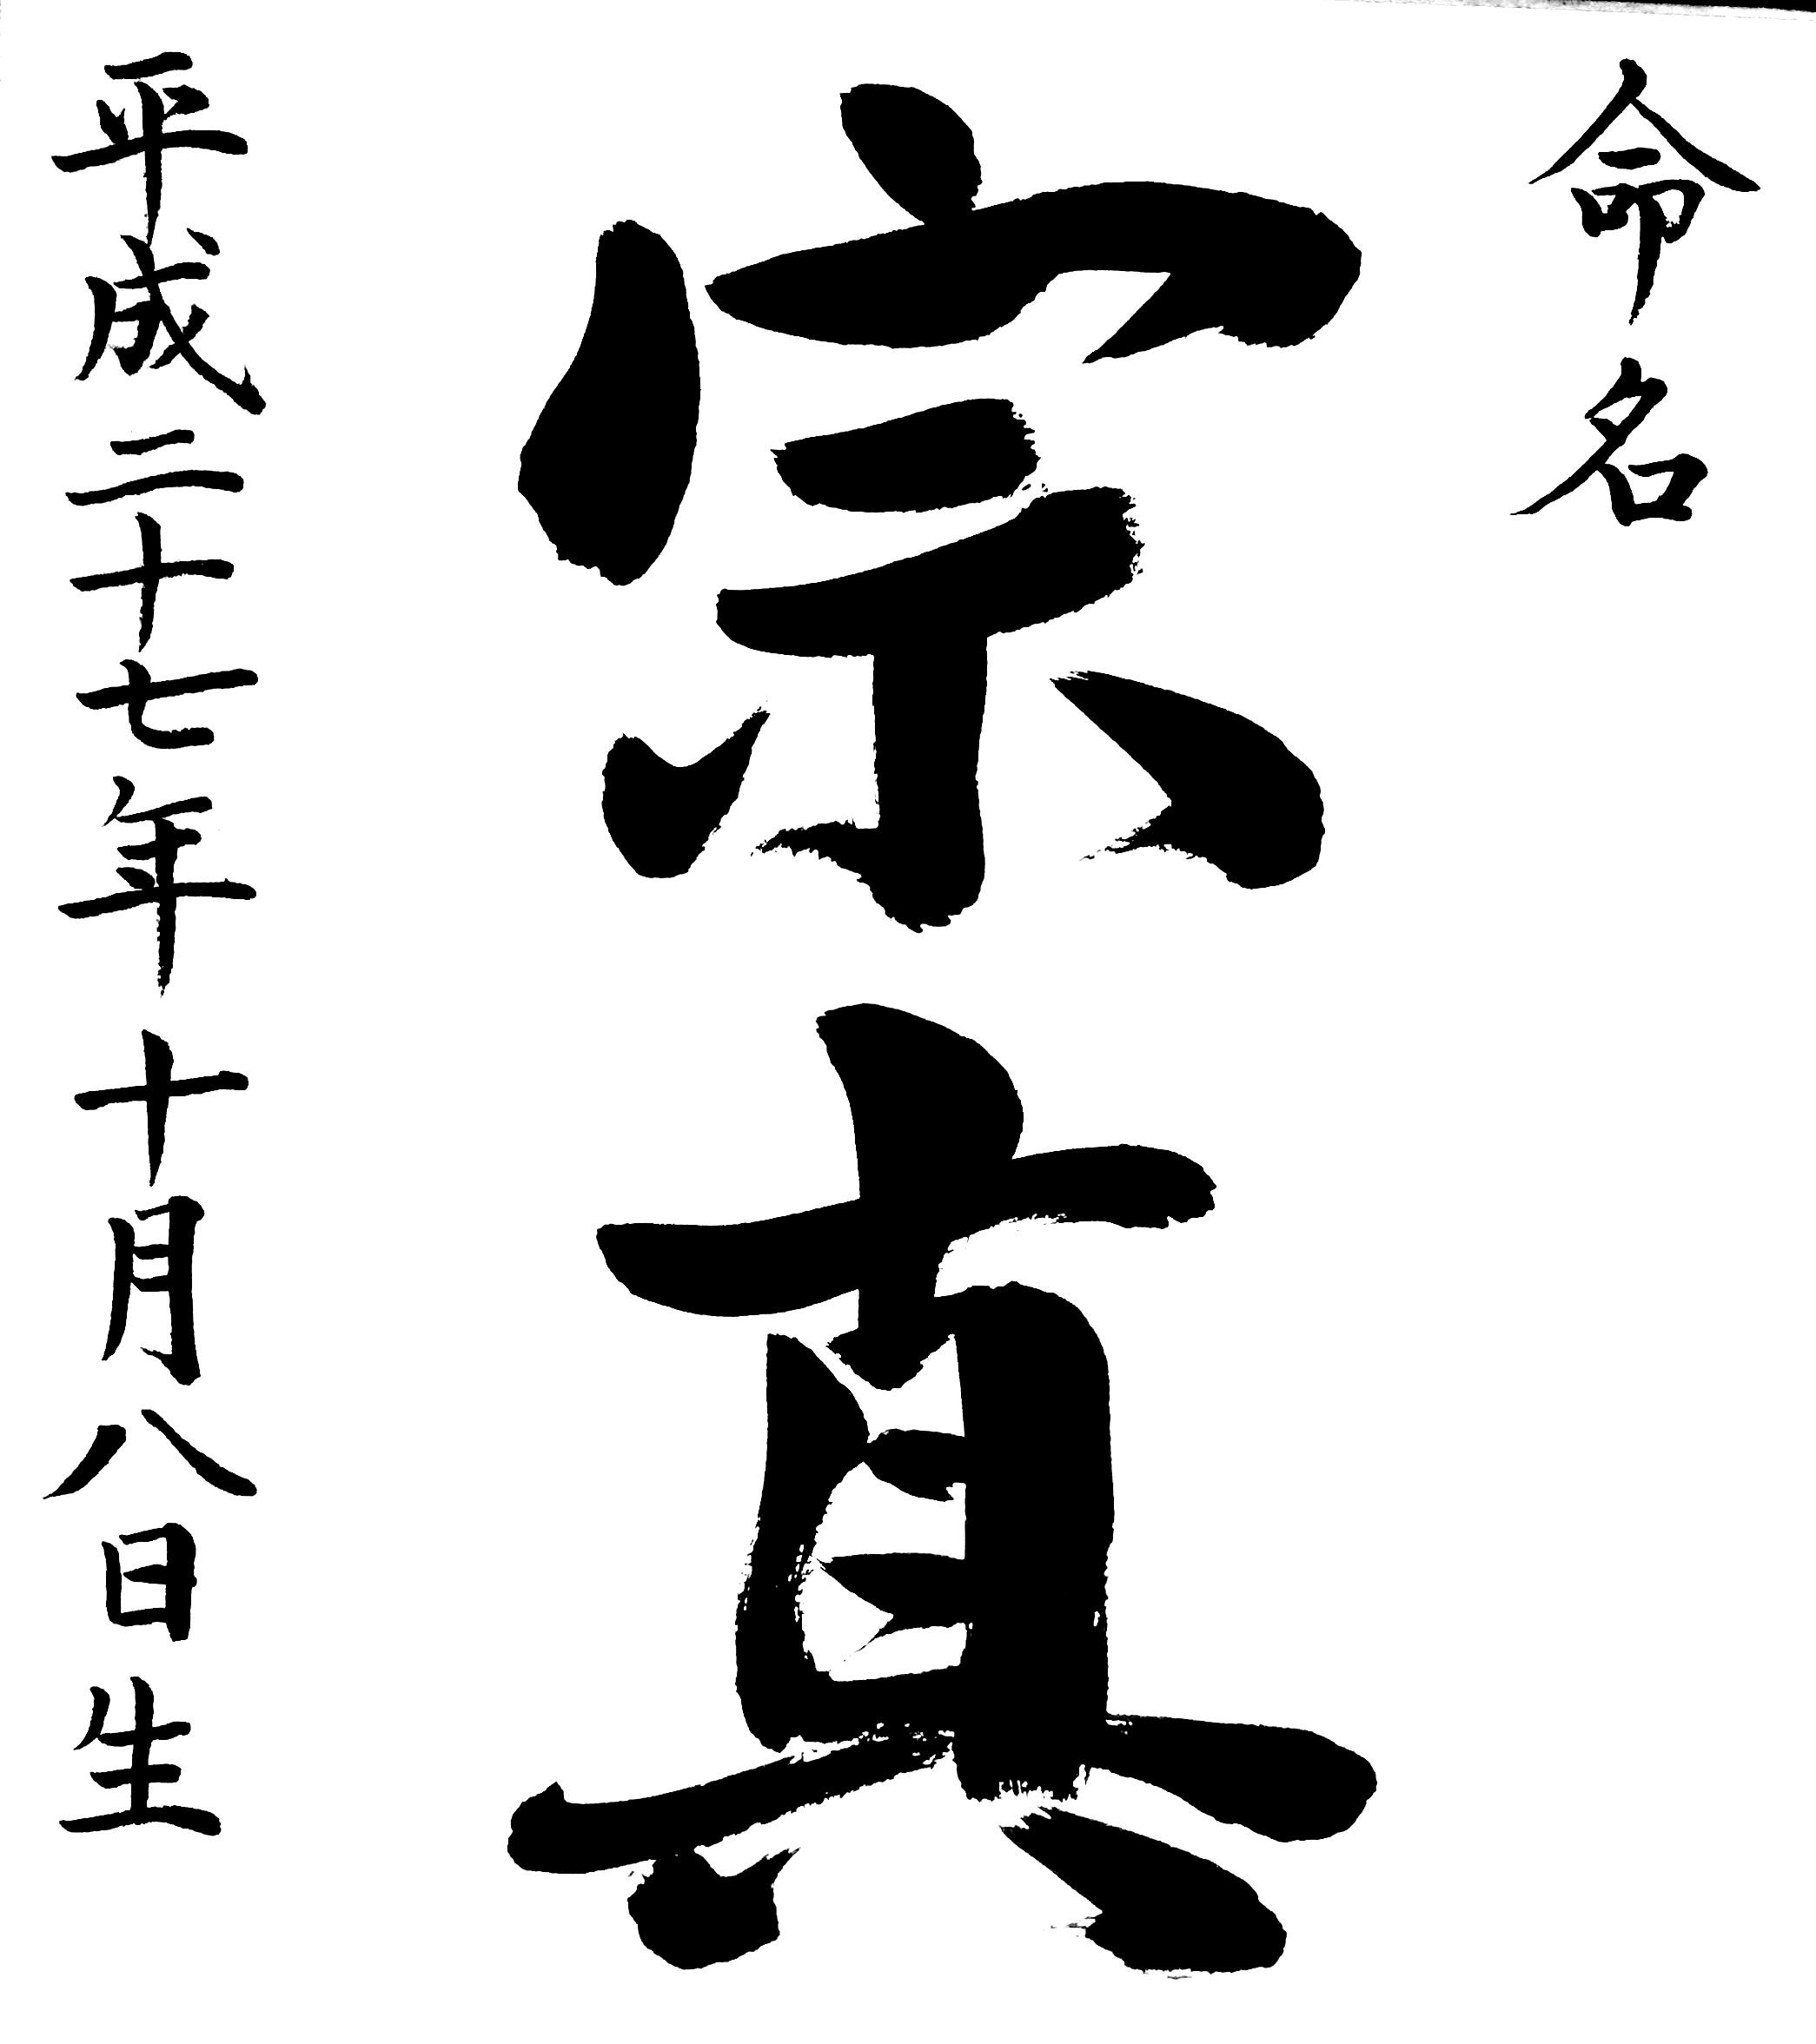 命名
宗真
平成二十七年十月八日生